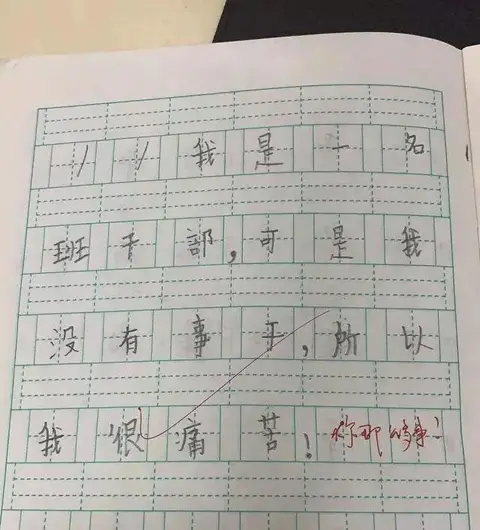 我是一名
班干部,可是我
没有事干,所以
我很痛苦!你那